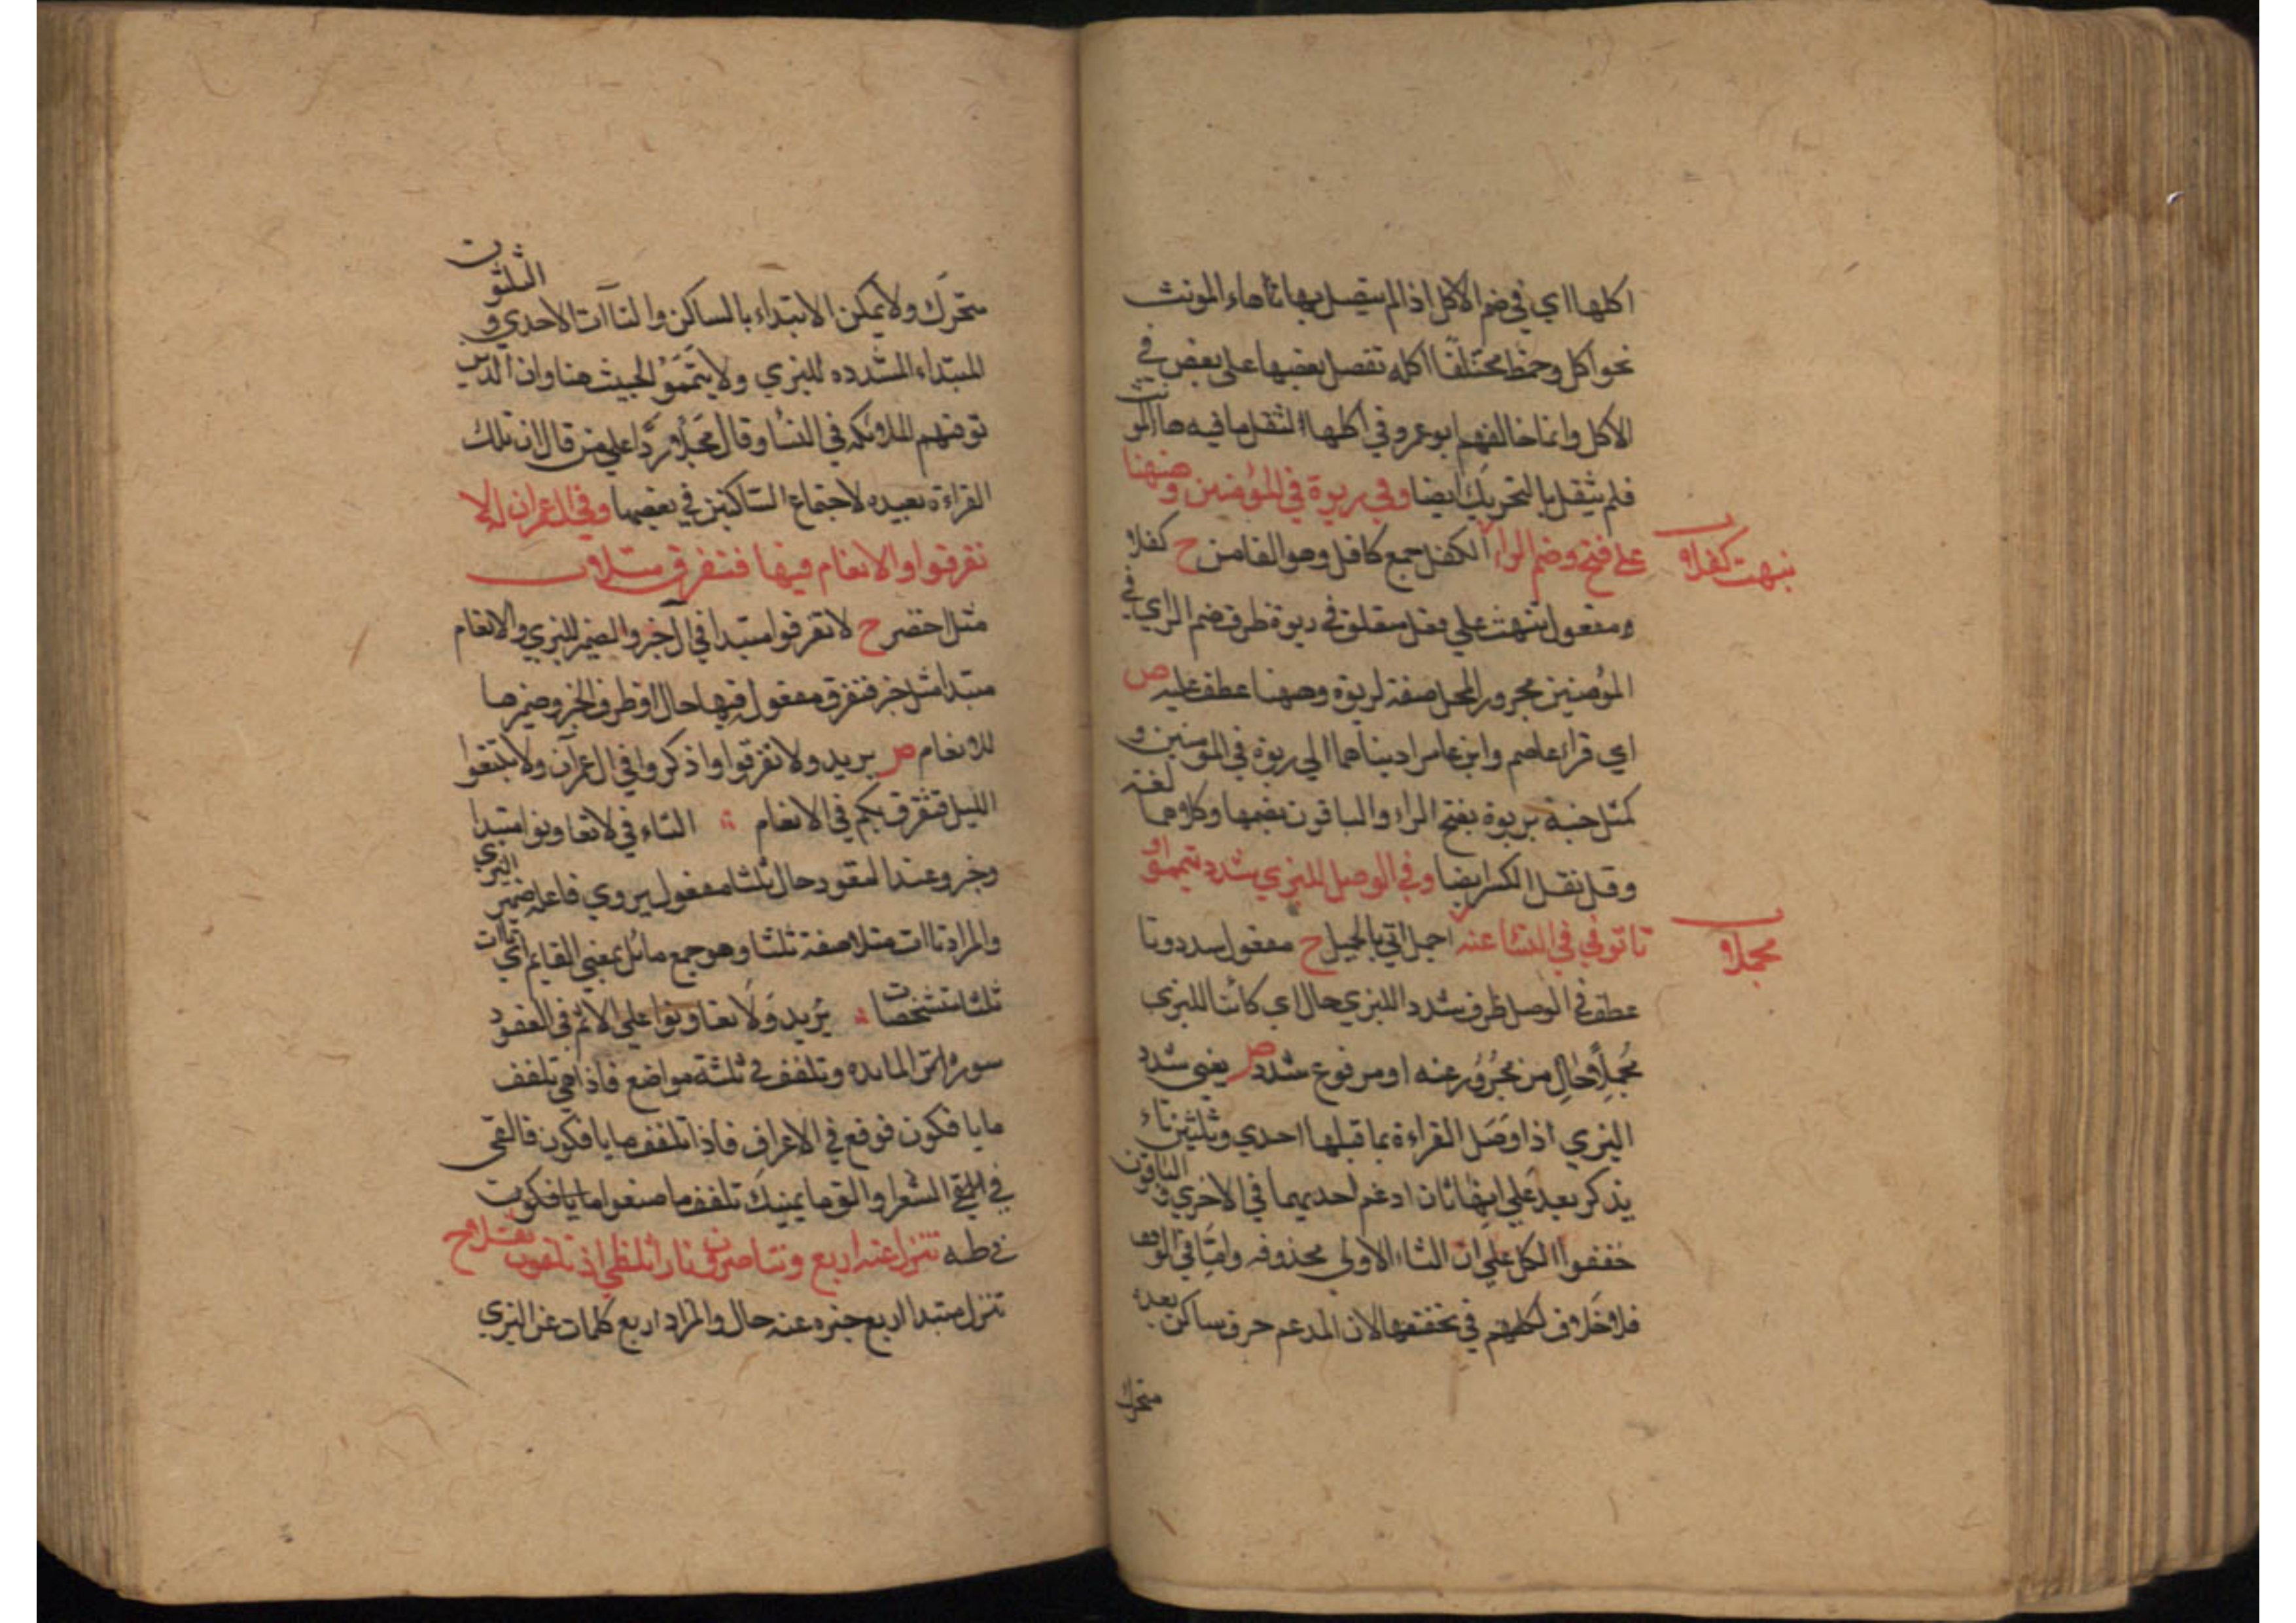 اكلها اي في ضم الاكل اذا لم يتصل بها ثاهاء المونث
نحو اكل وخمط مختلفا اكله تفصل بعضها على بعض في
الاكل وانما خالفهم ابو عمرو في اكلها لثقل ما فيه ها المونث
فلم يثقل بالتحريك ايضا وفي ربوة في المؤمنين وههنا
على فتح وضم الراء الكفل جمع كافل وهو الضامن ح كفلا
نبهت كفلا
ومفعول نبهت على فعل متعلق في ربوة ظرف ضم الراي في
المؤمنين مجرور المحل صفة لربوة وههنا عطف عليه ص
اي قرا عاصم وابن عامر ادينا هما الي ربوة في المؤمنين و
كمثل جنة بربوة بفتح الراء والباقون بضمها وكلاهما لغة
وقل نقل الكسر ايضا وفي الوصل للبزي شدد تيمموا و
تا توفي في النسا عنه اجمل اتي بالجميل ح مفعول شدد وتا
مجملا
عطف في الوصل ظرف شدد للبزي حال اي كائنا للبزي
مجملا حال من مجرور عنه او مرفوع شدد ص يعني شدد
البزي اذا وصل القراءة بما قبلها احدي وثلثين تاء
يذكر بعد علي انها تان ادغم احديهما في الاخري والباقون
خففوا الكل علي ان التاء الاولي محذوفه واما في الوقف
فلا خلاف لكلهم في تخففها لان المدغم حرف ساكن بعده
متحرك
متحرك ولا يمكن الابتداء بالساكن والتاآت الاحدي و الثلثون
المبتداء المشدده للبزي ولا تيمموا الخبيث هنا وان الذين
توفتهم الملائكه في النسا وقال مجملا ردا علي من قال ان تلك
القراءة بعيده لاجتماع الساكنين في بعضها وفي ال عمران له لا
تفرقوا والانعام فيها فتفرق مثلا
مثل احضر ح لا تفرقوا مبتدا في ال آخر والضمير للبزي والانعام
مبتدا مثل خبر فتفرق مفعول فيها حال او ظرف الخبر وضميرها
للانعام ص يريد ولا تفرقوا واذكروا في ال عمران ولا تتبعوا
السبل فتفرق بكم في الانعام التاء في لا تعاونوا مبتدا
وخبر وعند العقود حال ثلثا مفعول يروي فاعله ضمير البزي
والمراد تاات مثلا صفة ثلثا وهو جمع ماثل بمعني القايم اي تاات
ثلثا متشخصات يريد ولا تعاونوا علي الاثم في العقود
سورة المائده وتلقف في ثلثة مواضع فاذا هي تلقف
ما يافكون فوقع في الاعراف فاذا تلقف ما يافكون فالقي
في الشعرا والق ما يمينك تلقف ما صنعوا ما يافكون
في طه تنزل عنه اربع وتناصرون نارا تلظي اذ تلقون ثقلا ح
تنزل مبتدا اربع خبره عنه حال والمراد اربع كلمات عن البزي